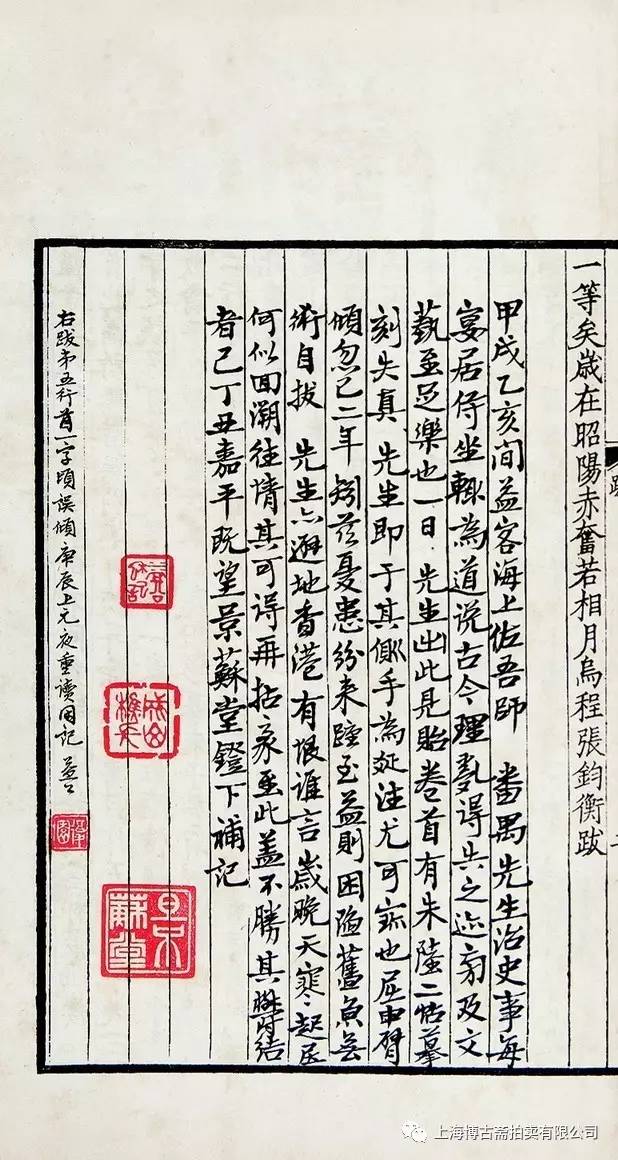 一等矣歲在昭陽赤奮若相月烏程張鈞衡跋
甲戌乙亥間益客海上佐吾師 番禺先生治史事每
宴居侍坐輒為道說古今理亂得失之迹旁及文
藝至足樂也一日 先生出此見貽卷首有朱陸二帖摹
刻失真 先生即于其側手為注尤可寶也屈申臂
傾忽已二年 矧茲憂患紛来踵至益則困陋舊魚無
術自拔 先生亦避地香港有恨誰言歲晚天寒起居
何似回溯往情其可得再拈豪至此蓋不勝其鬱結
者已丁丑嘉平既望景蘇堂鐙下補記
右跋弟五行首一字頃誤傾庚辰上元夜重讀因記 益
景蘇堂
上海博古斋拍卖有限公司